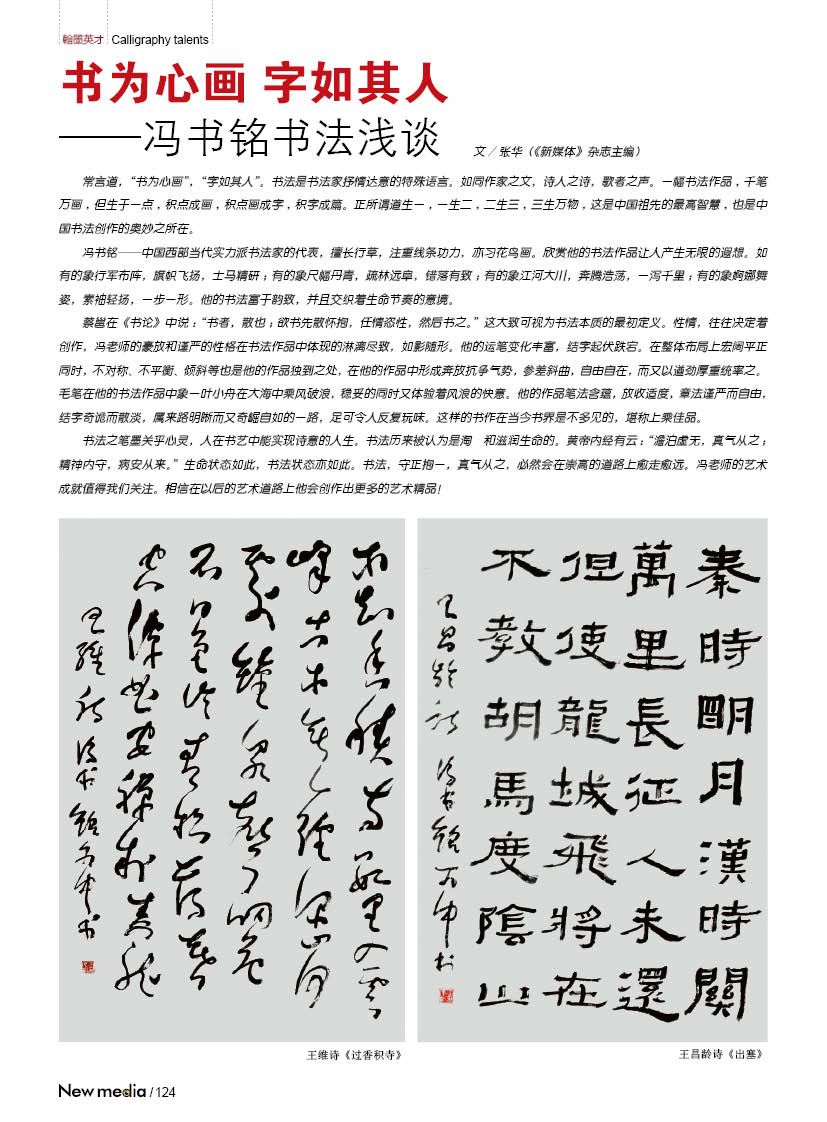 翰墨英才 Calligraphy talents
书为心画 字如其人
——冯书铭书法浅谈 文／张华（《新媒体》杂志主编）
常言道，“书为心画”，“字如其人”。书法是书法家抒情达意的特殊语言。如同作家之文，诗人之诗，歌者之声。一幅书法作品，千笔
万画，但生于一点，积点成画，积点画成字，积字成篇。正所谓道生一，一生二，二生三，三生万物，这是中国祖先的最高智慧，也是中
国书法创作的奥妙之所在。
冯书铭——中国西部当代实力派书法家的代表，擅长行草，注重线条功力，亦习花鸟画。欣赏他的书法作品让人产生无限的遐想。如
有的象行军布阵，旗帜飞扬，士马精研；有的象尺幅丹青，疏林远阜，错落有致；有的象江河大川，奔腾浩荡，一泻千里；有的象婀娜舞
姿，素袖轻扬，一步一形。他的书法富于韵致，并且交织着生命节奏的意境。
蔡邕在《书论》中说：“书者，散也；欲书先散怀抱，任情恣性，然后书之。”这大致可视为书法本质的最初定义。性情，往往决定着
创作，冯老师的豪放和谨严的性格在书法作品中体现的淋漓尽致，如影随形。他的运笔变化丰富，结字起伏跌宕。在整体布局上宏阔平正
同时，不对称、不平衡、倾斜等也是他的作品独到之处，在他的作品中形成奔放抗争气势，参差斜曲，自由自在，而又以遒劲厚重统率之。
毛笔在他的书法作品中象一叶小舟在大海中乘风破浪，稳妥的同时又体验着风浪的快意。他的作品笔法含蕴，放收适度，章法谨严而自由，
结字奇诡而散淡，属来路明晰而又奇崛自如的一路，足可令人反复玩味。这样的书作在当今书界是不多见的，堪称上乘佳品。
书法之笔墨关乎心灵，人在书艺中能实现诗意的人生。书法历来被认为是淘 和滋润生命的。黄帝内经有云：“澹泊虚无，真气从之；
精神内守，病安从来。”生命状态如此，书法状态亦如此。书法，守正抱一，真气从之，必然会在崇高的道路上愈走愈远。冯老师的艺术
成就值得我们关注。相信在以后的艺术道路上他会创作出更多的艺术精品！
不知香積寺數里入雲
峰古木無人徑深山何
處鐘泉聲咽危
石日色冷青松薄暮
空潭曲安禪制毒龍
王維詩 馮書銘 書
秦時明月漢時關
萬里長征人未還
但使龍城飛將在
不教胡馬度陰山
王昌齡詩 馮書銘
王维诗《过香积寺》
王昌龄诗《出塞》
New media / 124